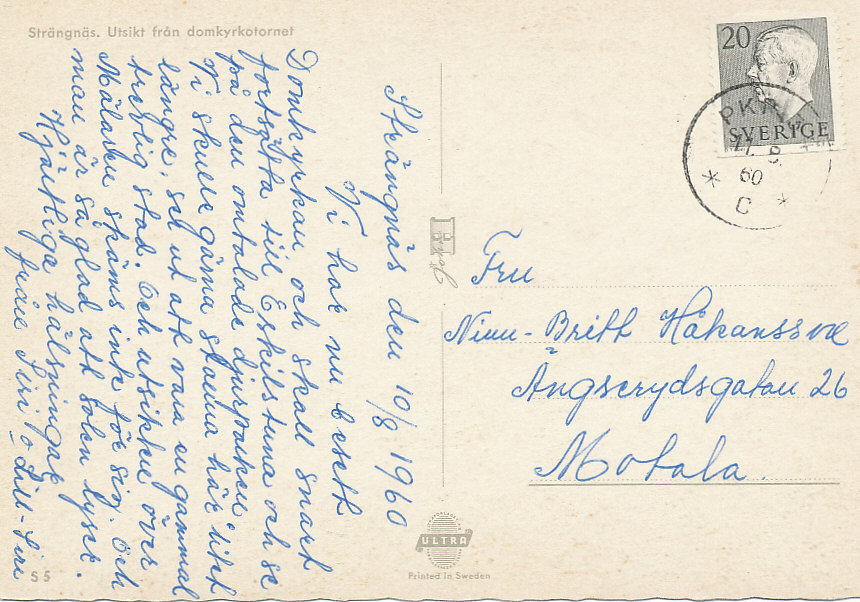 Strängnäs. Utsikt från domkyrkotornet
Strängnäs den 10/8 1960
Vi har nu besett
Domkyrkan och skall snart
fortsätta till Eskilstuna och se
på den omtalade djurparken.
Vi skulle gärna stanna här litet
längre, set ut att vara en gammal
trevlig stad. Och utsikten över
Mälaren skäms inte för sig. Och
man är så glad att solen lyser.
Hjärtliga hälsningar
från Siri o Lill-Siri
S 5
20
SVERIGE
PKXP
60
C
Fru
Britt Håkansson
Ängserydsgatan 26
Motala.
ULTRA
Printed in Sweden